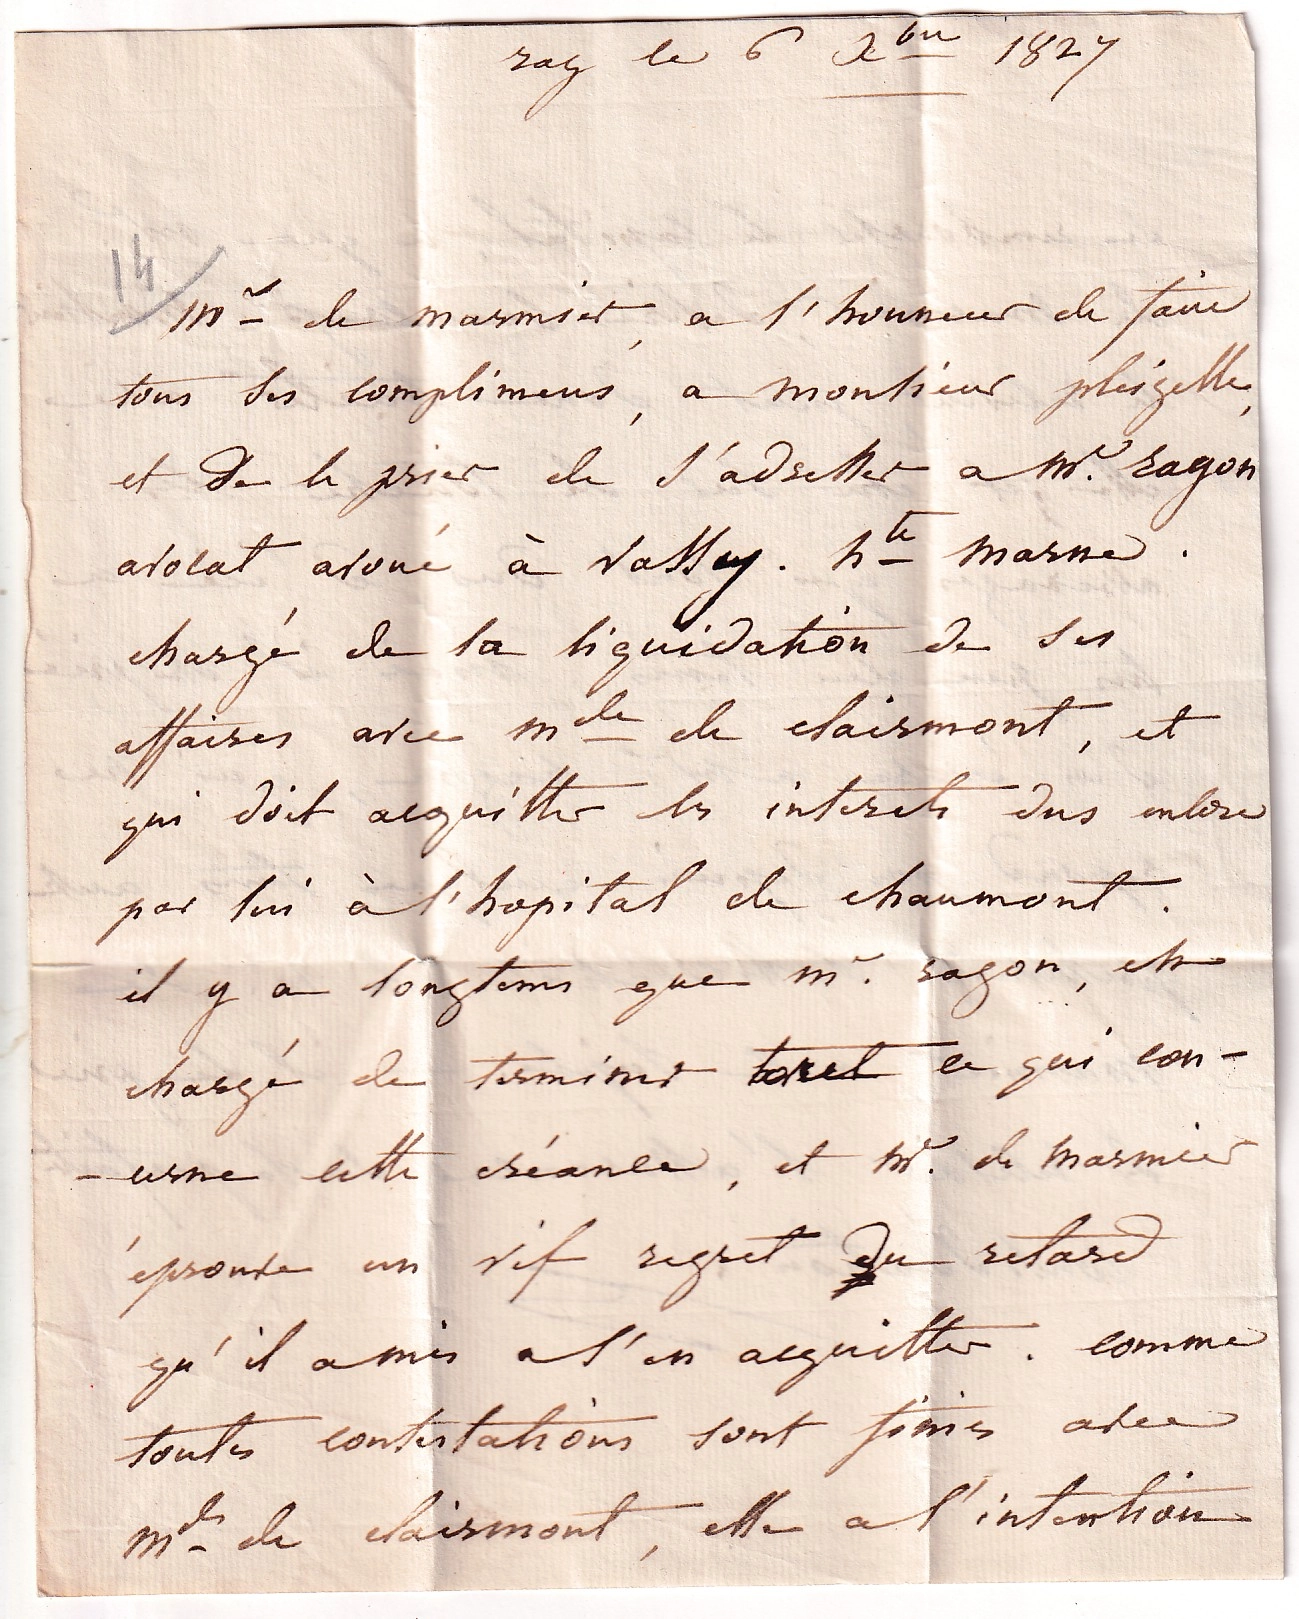 ray le 6 Xbre 1827
14
Mr de marmier, a l'honneur de faire
tous ses complimens, a monsieur pleigelle,
et De le prier de s'adresser a Mr. ragon
avocat avoué à vassy. hte marne.
chargé de la liquidation de ses
affaires avec mde de clairmont, et
qui doit acquitter les interets dus encore
par lui à l'hopital de chaumont.
il y a longtems que mr. ragon, est
chargé de terminer tout ce qui con-
-cerne cette créance, et Mr. de marmier
éprouve un vif regret du retard
qu'il a mis a s'en acquitter. comme
toutes contestations sont finies avec
mde de clairmont, elle a l'intention